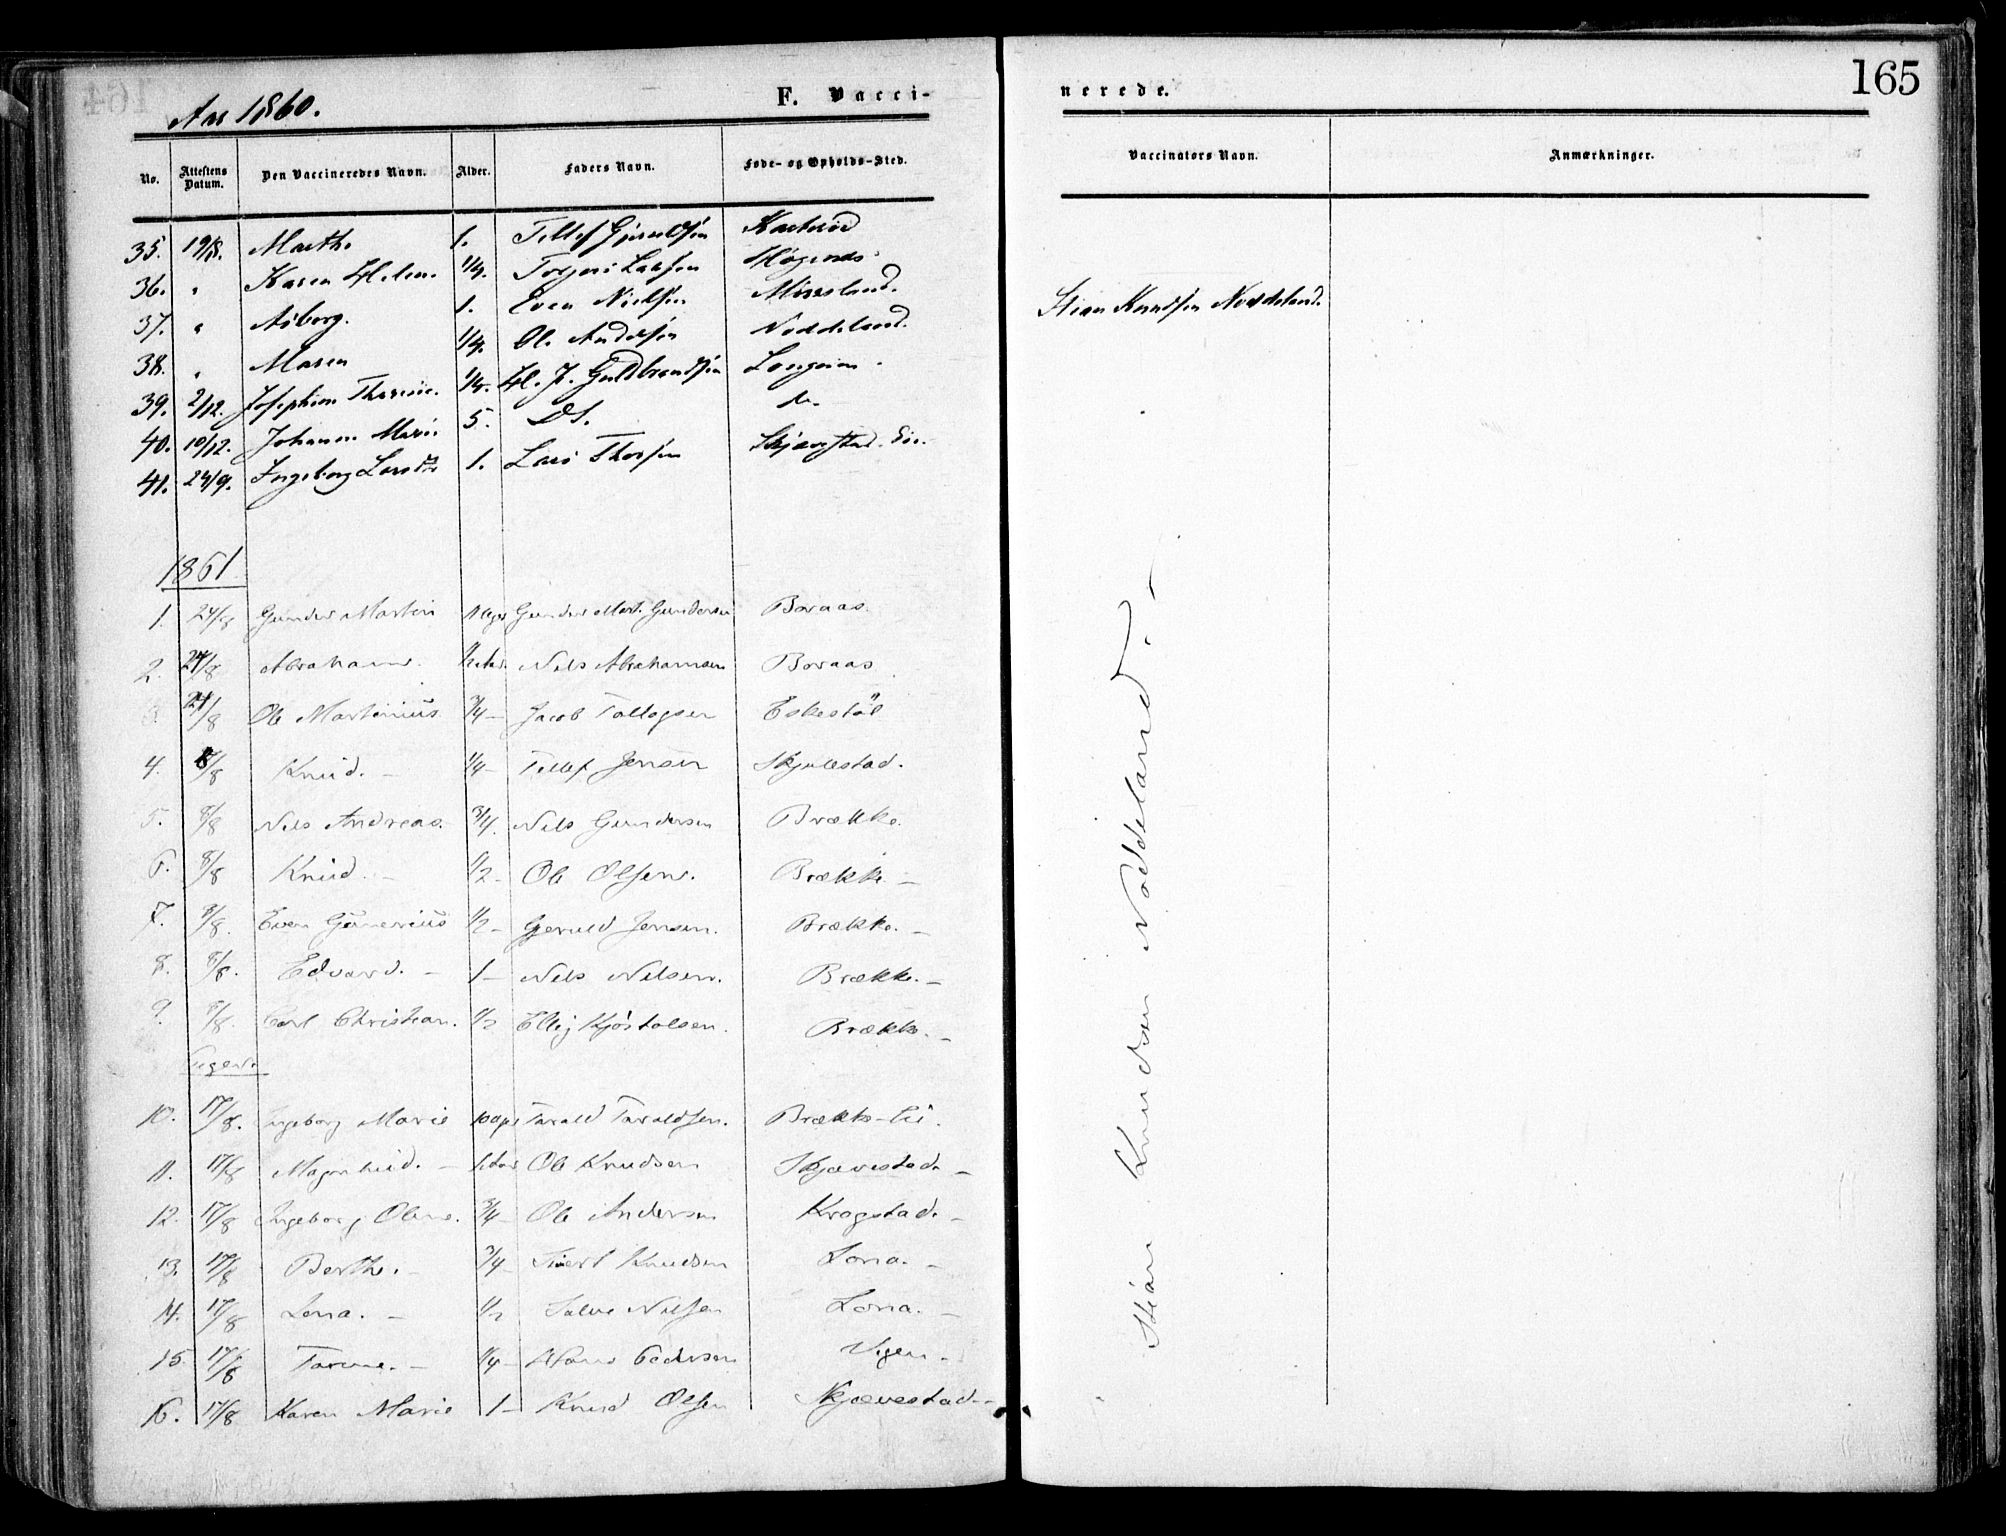 165
Aar 1860.
F. Vacci-
nerede.
No. Attestens Datum. Den Vaccineredes Navn. Alder. Faders Navn. Føde- og Opholds-Sted. Vaccinators Navn. Anmærkninger.
35. 19/8. Marthe 1. Tellef
36. " Karen Helene 1/4. Torjus Larsen
37. " Aaborg. 1. Even Nielsen
38. " Maren 1/4. Ole Andersen Noddeland.
39. 2/12. Josephine 1/4. H. J. Guldbrandsen
40. 10/12. Johanne Marie 5. DS.
41. 24/9. Ingeborg Larsdtr 1. Lars
Stian Knudsen Noddeland.
1861
1. 24/8 Gunder Martin Gunder Mart. Gundersen Boraas.
2. 24/8 Abraham. Nils Abrahamsen Boraas
24/8 Ole Martinius 3/4 — Jacob Tallagsen Eskestøl
4. 8/8 Knud. — 1/4 — Tellef Jensen
5. 8/8 Nils Andreas. 3/4. Nils Gundersen Brække.
6. 8/8 Knud. — 1/2 — Ole Olsen. Brække —
7. 8/8. Even Gunerius 1/2 — Gjeruld Jensen. Brække. —
8. 8/8. Edvard. — 1 — Nils Nilsen. Brække. —
9. 8/8. Carl Christian. 1/2 Ellij Kjøstolsen. Brække. —
10. 17/8. Ingeborg Marie Tarald Taraldsen. Brække-lii.
11. 17/8 Magnhild. — Ole Knudsen Skjævestad. —
12. 17/8 Ingeborg Oline. 3/4 — Ole Andersen Kragstad. —
13. 17/8 Berthe. — 3/4 — Knudsen Lona. —
14. 17/8 Lena. — 1/2 Salve Nilsen Lona. —
15. 17/8 Tarine. — 1/4 — Hans Pedersen Vigen. —
16. 17/8 Karen Marie 1 — Knud Olsen Skjævestad. —
Stian Knudsen Noddeland. —